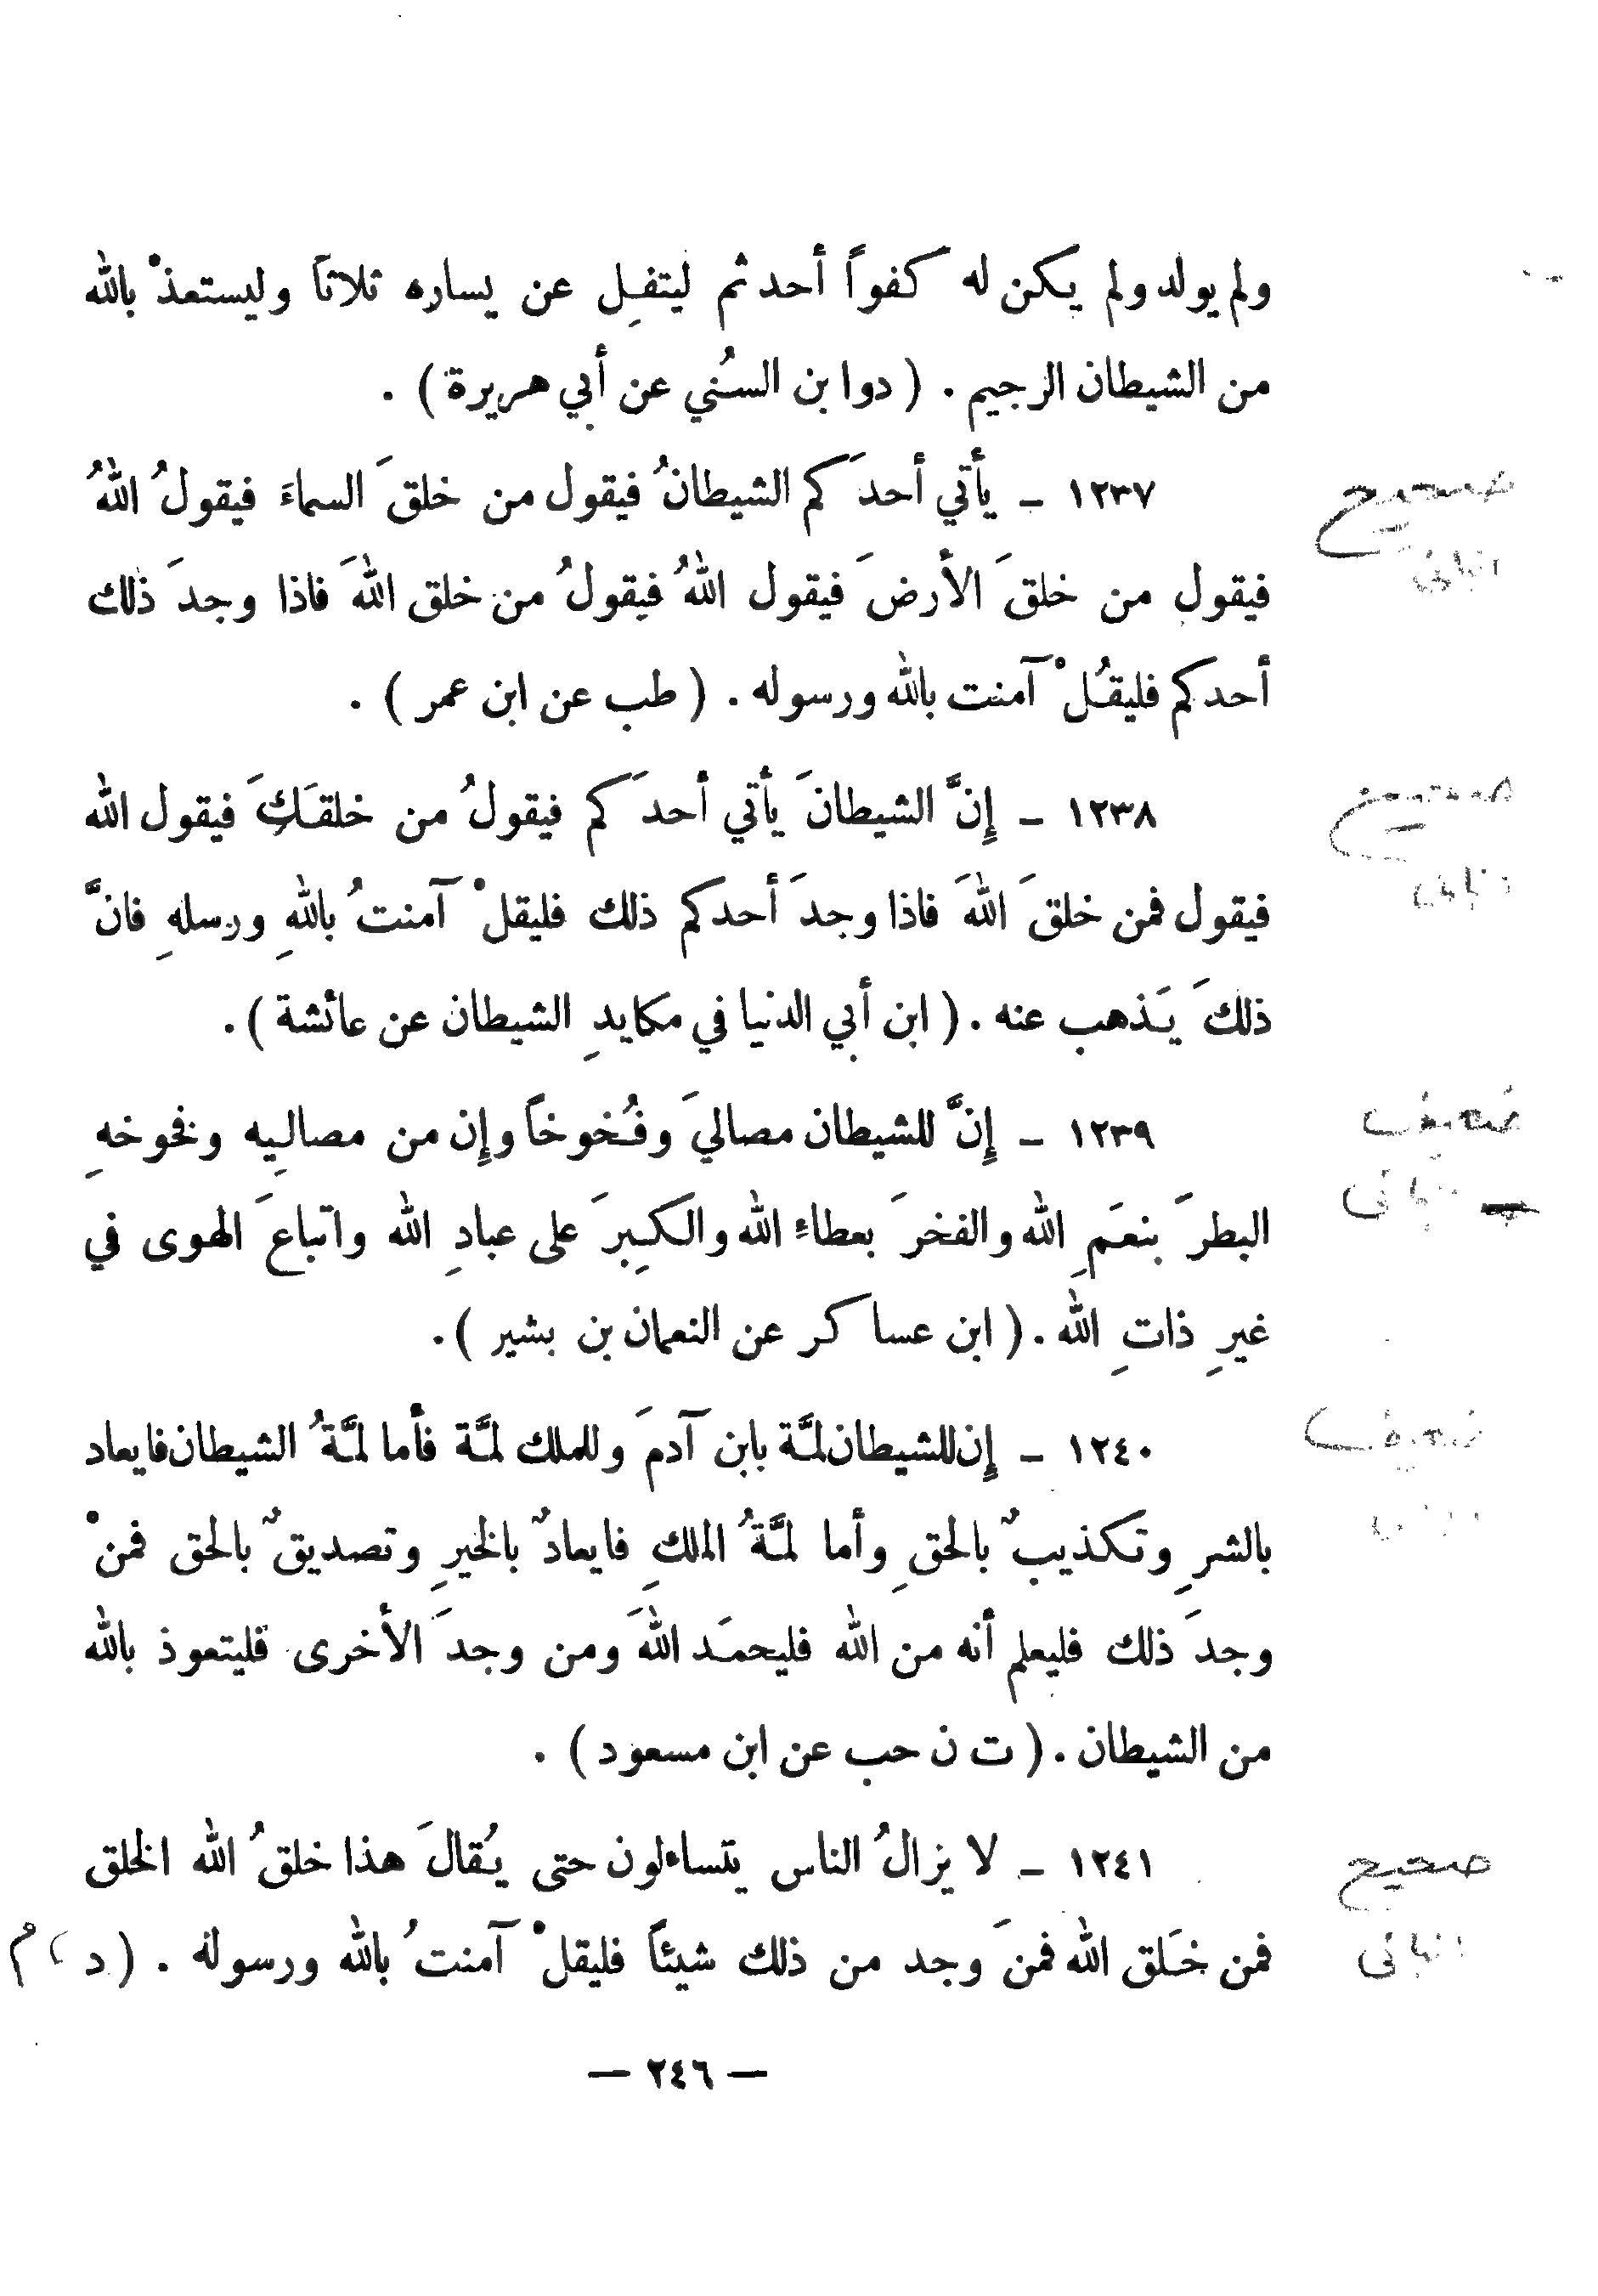 ولم يولد ولم يكن له كفواً أحد ثم ليتفلِ عن يساره ثلاثاً وليستعذْ بالله
من الشيطان الرجيم . ( د وابن السُني عن أبي هريرة ) .
١٢٣٧ ـ يأتي أحدَكم الشيطانُ فيقول من خلقَ السماءَ فيقولُ اللهُ
صحيح
فيقول من خلقَ الأرضَ فيقول اللهُ فيقولُ من خلق اللهَ فاذا وجدَ ذلك
البانى
أحدكم فليقُلْ آمنت بالله ورسوله . ( طب عن ابن عمر ) .
١٢٣٨ ـ إِنَّ الشيطانَ يأتي أحدَكم فيقولُ من خلقَكَ فيقول الله
صحيح
فيقول فمن خلقَ اللهَ فاذا وجدَ أحدكم ذلك فليقلْ آمنتُ باللهِ ورسلهِ فانَّ
ذلكَ يَذهب عنه . ( ابن أبي الدنيا في مكايدِ الشيطان عن عائشة ) .
١٢٣٩ ـ إِنَّ للشيطان مصاليَ وفُخوخاً وإِن من مصالِيه وفخوخهِ
ضعيف
البطرَ بنعَمِ الله والفخرَ بعطاءِ الله والكِبرَ على عبادِ الله واتباعَ الهوى في
البانى
غيرِ ذاتِ الله . ( ابن عساكر عن النعمان بن بشير ) .
١٢٤٠ ـ إِن للشيطان لمَّة بابن آدمَ وللملك لمَّة فأما لمَّةُ الشيطان فايعاد
ضعيف
بالشرِ وتكذيبٌ بالحقِ وأما لمَّةُ الملكِ فايعادٌ بالخيرِ وتصديقٌ بالحق فمنْ
وجدَ ذلك فليعلم أنه من الله فليحمَد اللهَ ومن وجدَ الأخرى فليتعوذ بالله
من الشيطان . ( ت ن حب عن ابن مسعود ) .
١٢٤١ ـ لا يزالُ الناس يتساءلون حتى يُقالَ هذا خلقُ الله الخلق
صحيح
فمن خَلق الله فمنَ وجد من ذلك شيئاً فليقلْ آمنتُ بالله ورسوله . ( د ، م
البانى
— ٢٤٦ —